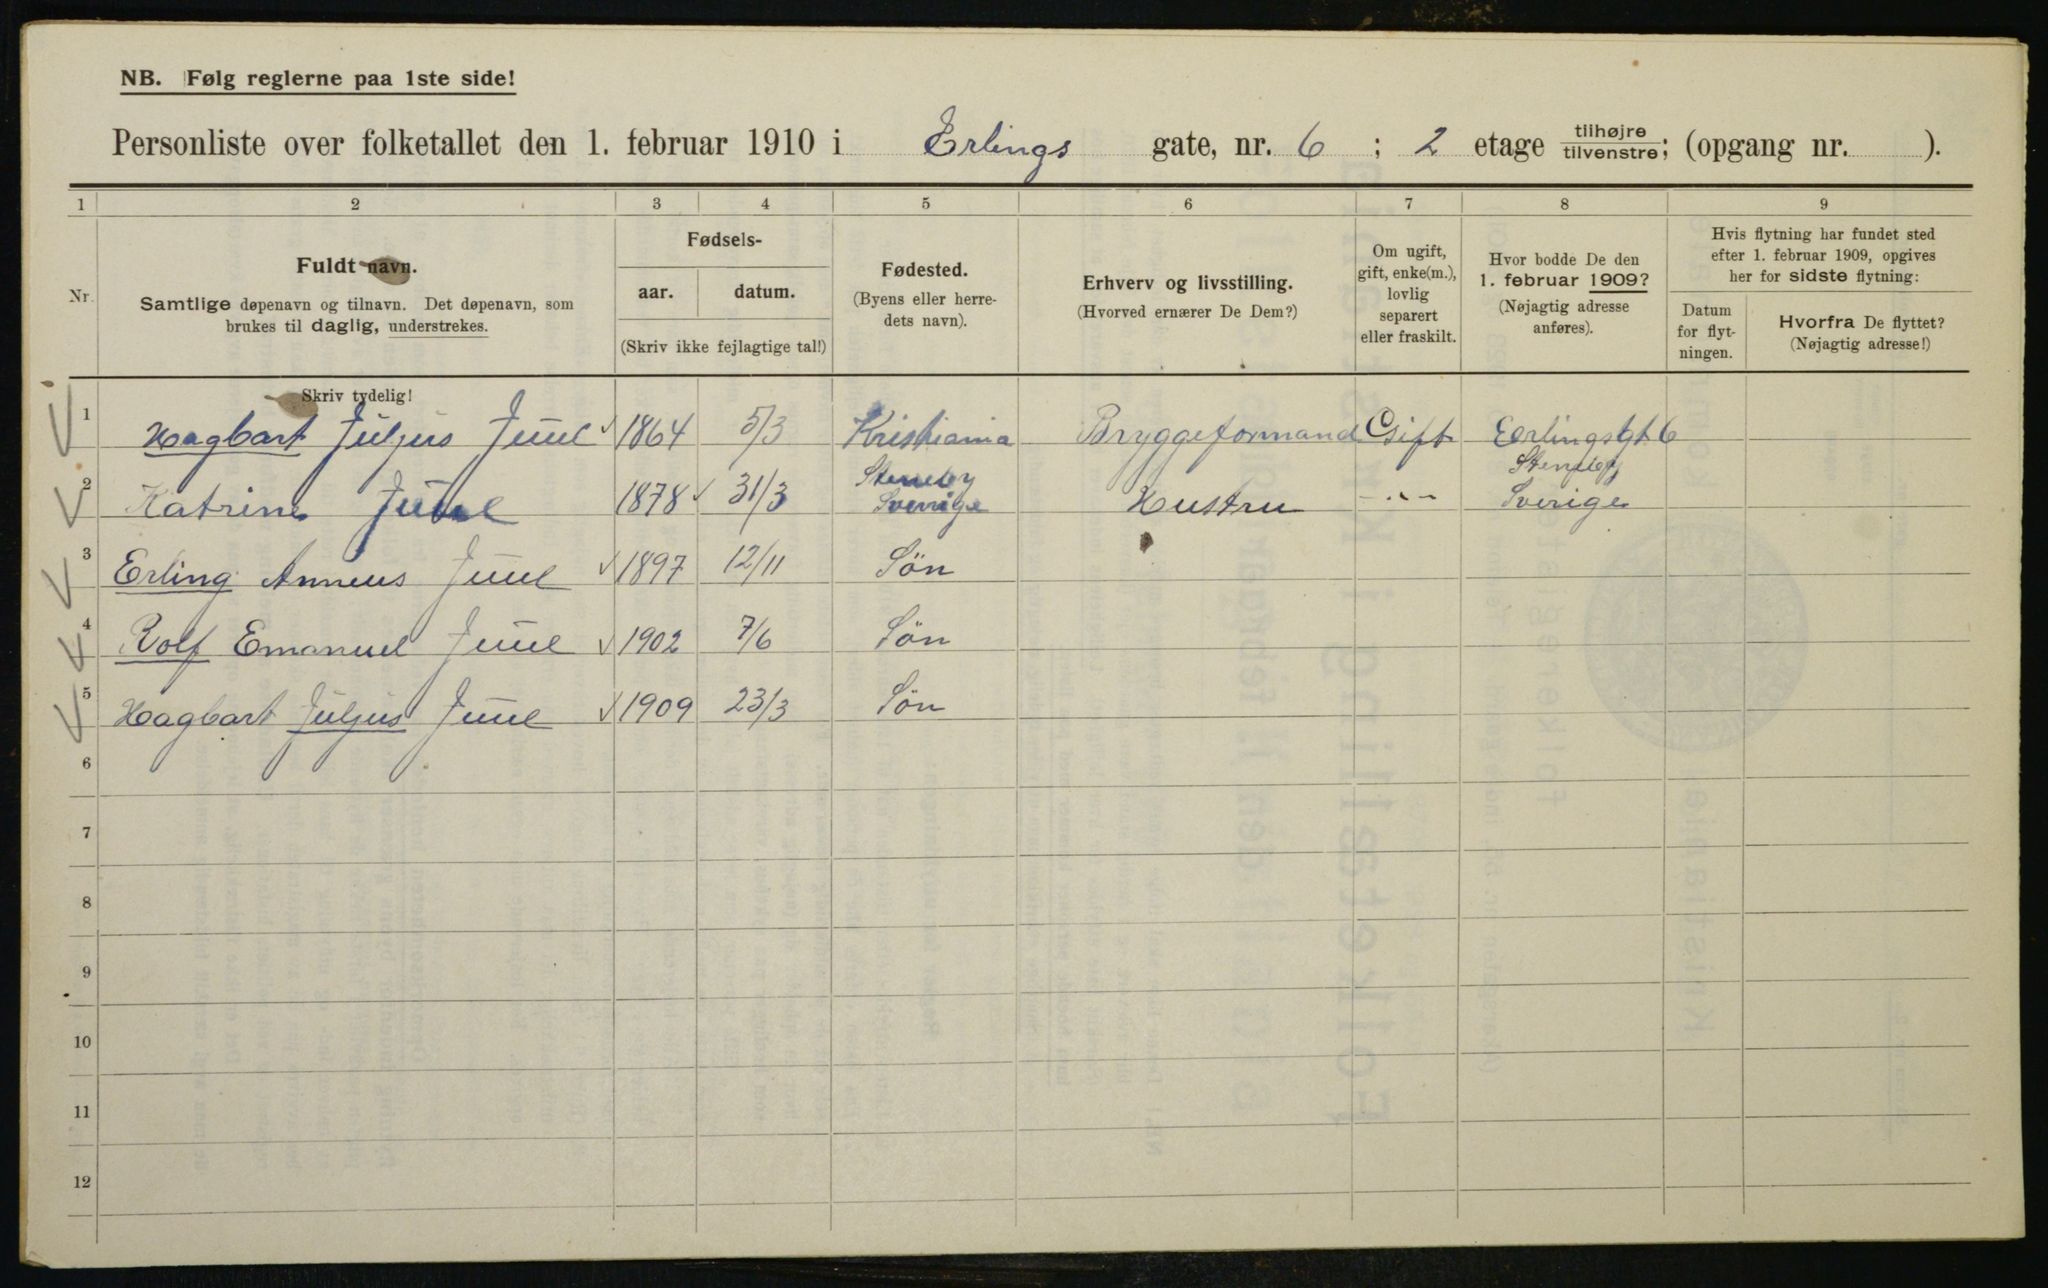 NB. Følg reglerne paa 1ste side!
Personliste over folketallet den 1. februar 1910 i Erlings gate, nr. 6 ; 2 etage tilhøjre tilvenstre; (opgang nr. ).
1 2 3 4 5 6 7 8 9
Nr.
Fuldt navn.
Samtlige døpenavn og tilnavn. Det døpenavn, som
brukes til daglig, understrekes.
Skriv tydelig!
Fødsels-
aar. datum.
(Skriv ikke fejlagtige tal!)
Fødested.
(Byens eller herre-
dets navn).
Erhverv og livsstilling.
(Hvorved ernærer De Dem?)
Om ugift,
gift, enke(m.),
lovlig
separert
eller fraskilt.
Hvor bodde De den
1. februar 1909?
(Nøjagtig adresse
anføres).
Hvis flytning har fundet sted
efter 1. februar 1909, opgives
her for sidste flytning:
Datum
for flyt-
ningen.
Hvorfra De flyttet?
(Nøjagtig adresse!)
1 Hagbart Juljus Juul 1864 5/3 Kristiania Bryggeformand Gift Erlingsgt 6
2 Katrine Juul 1878 31/3 Steneby Sverige Hustru -"- Steneby Sverige
3 Erling Anneus Juul 1897 12/11 Sön
4 Rolf Emanuel Juul 1902 7/6 Sön
5 Hagbart Juljus Juul 1909 23/3 Sön
6
7
8
9
10
11
12